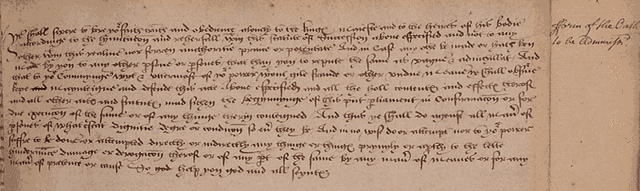 Ye shall swere to bere yor faith truth and obedience alonely to the kings mageste and to the heires of his bodie
accordinge to the limitacion and rehersall wtin this statute of succession above specified and not to any
other wtin this realme nor foreyn auctorite prince or potentate And in case any othe be made or hath ben
made by you to any other psone or psones that than you to repute the same as vayne & adnichillat And
that to yor connynge wyt & uttermost of yor power wtout gile fraude or other undue meane ye shall observe
kepe maynteigne and defende this acte above specified and all the hole contentes and effectes therof
and all other actes and statutes made sithen the begynnynge of this psent pliament in confirmacon or for
due execucon of the same or of any thinge therin conteigned And thus ye shall do ayenst all maner of
psones of what estat dignitie degre or condicon so ev they be And in no wise do or attempt nor to yor power
suffre to be don or attempted directly or indirectly any thinge or thinges prively or aptly to the lette
hinderaunce damage or derogacion therof or of any pt of the same by any maner of meanes or for any
maner of pretence or cause So god help you god and all seyntes
fforme of the Oath
to be Administr